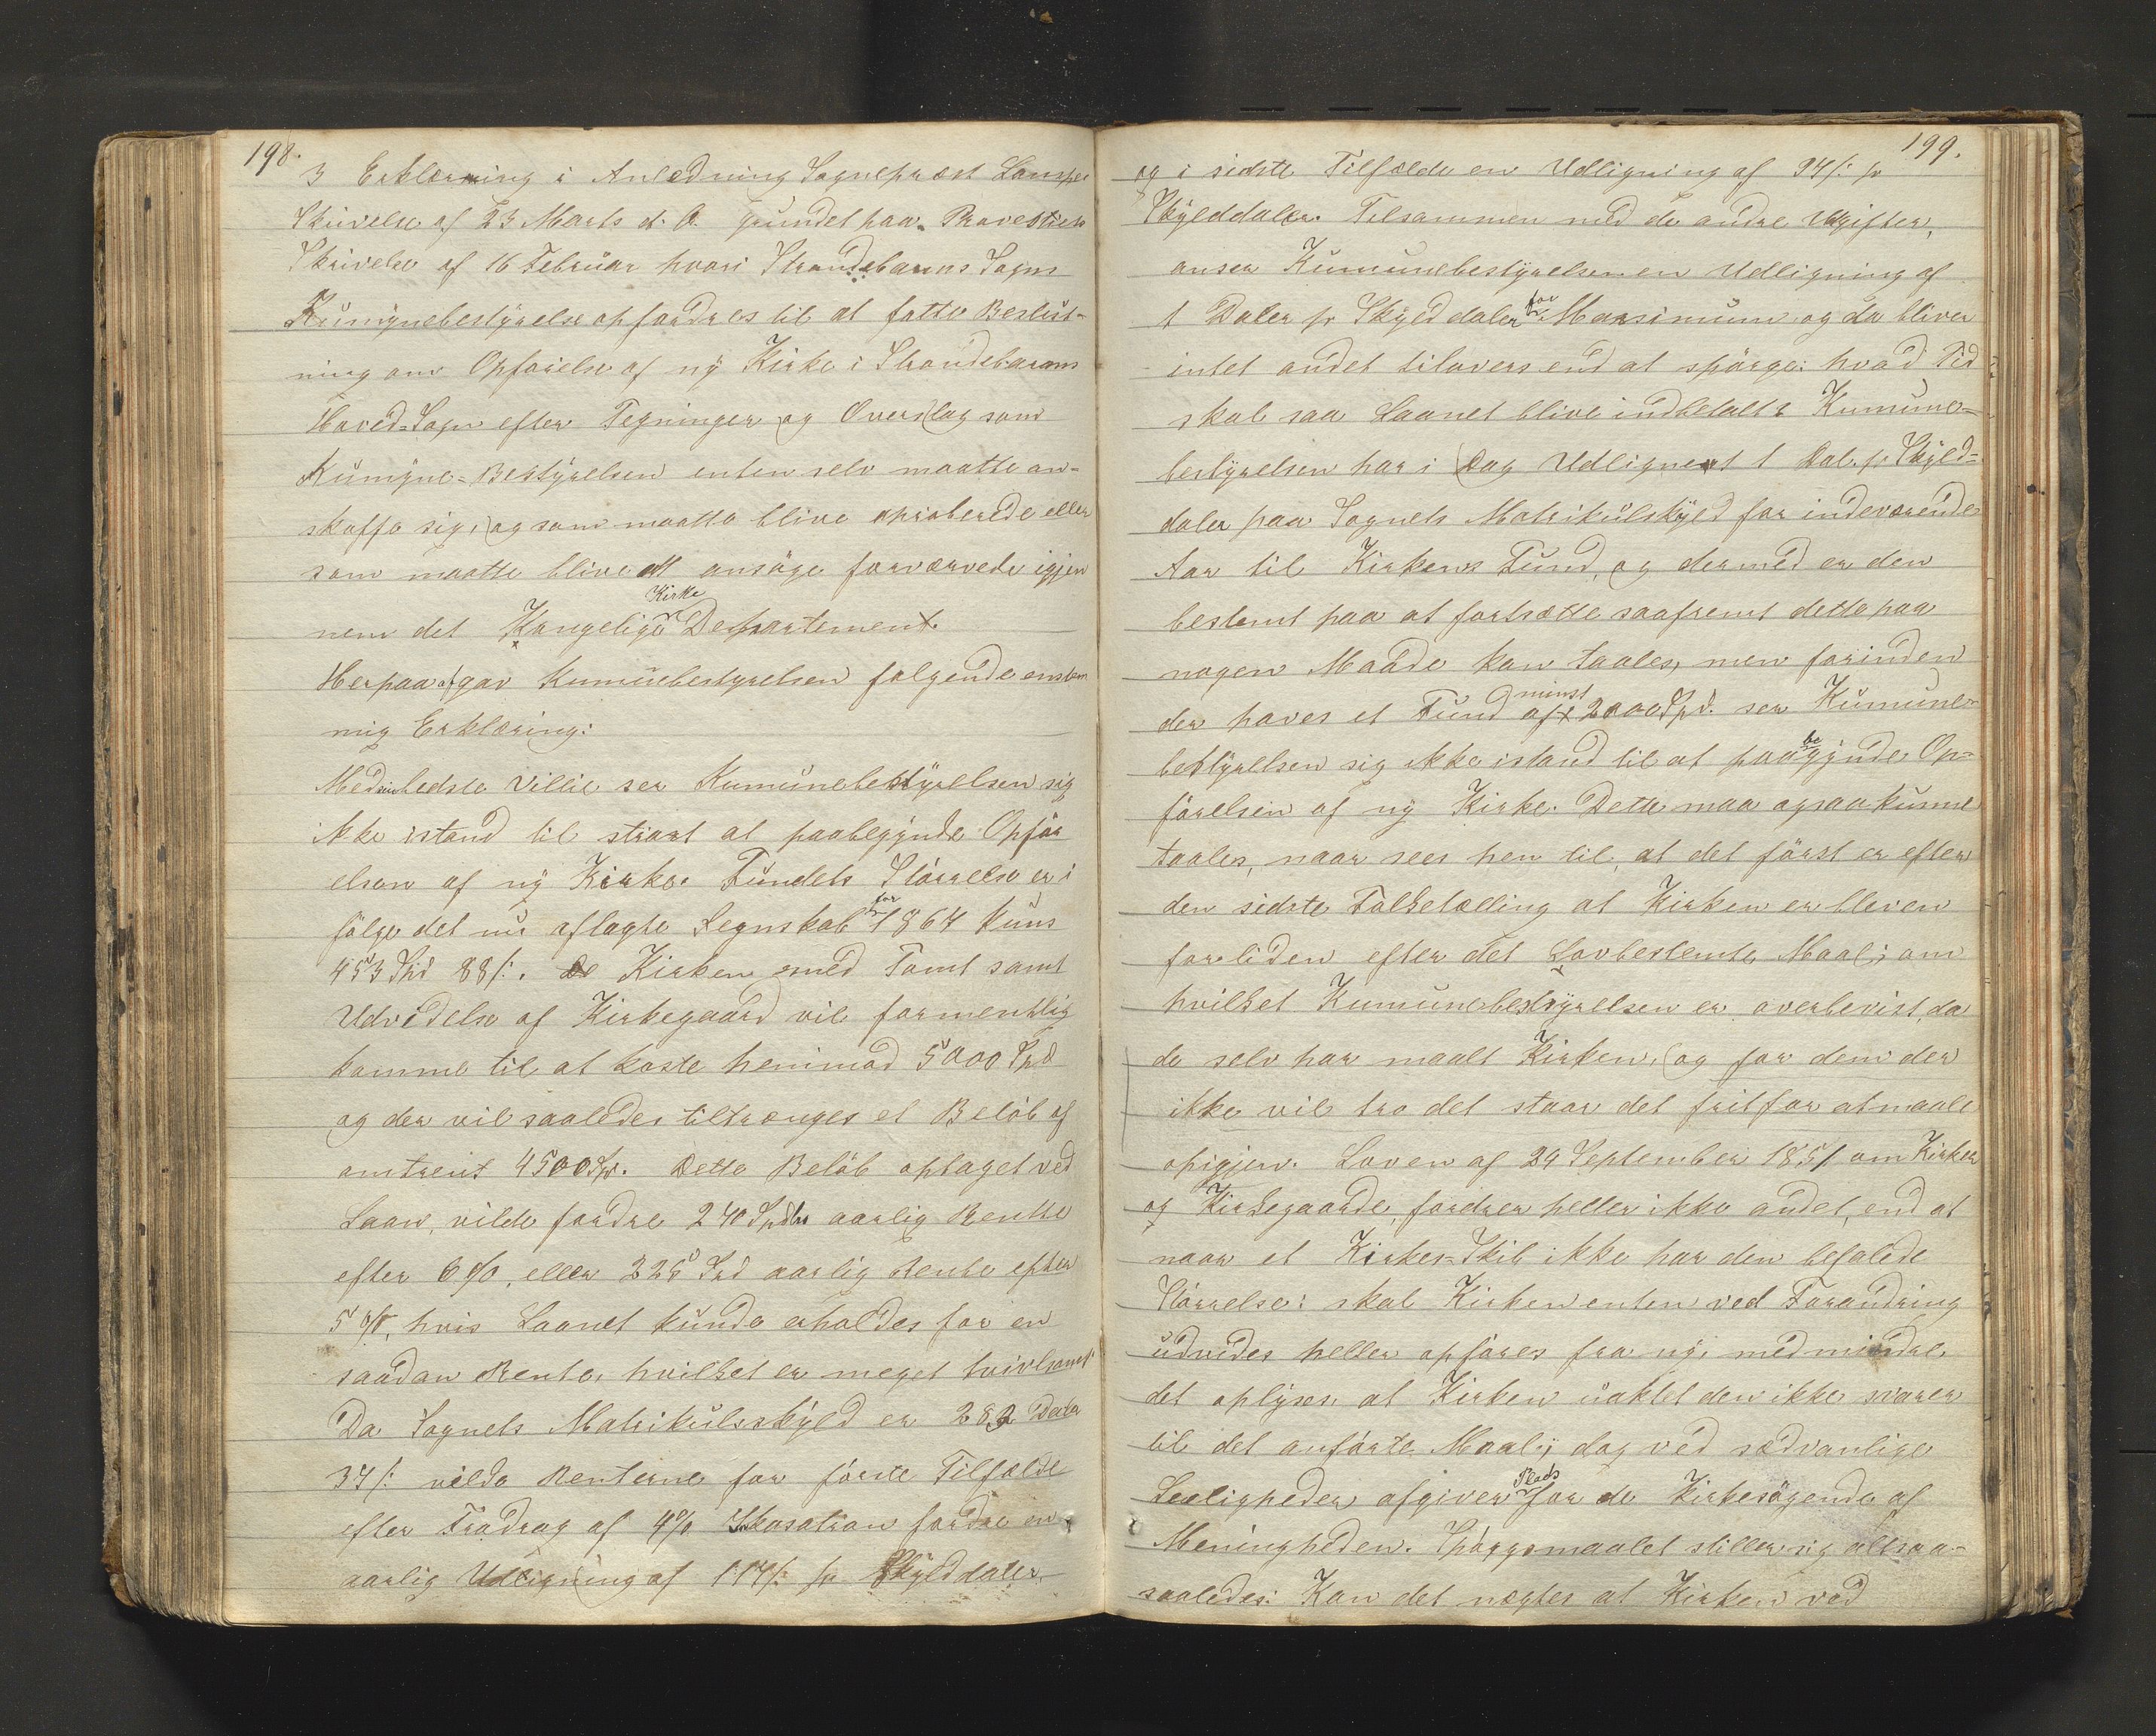 198.
3 Erklærning i Anledning Sognepræst
Skrivelse af 23 Marts d. A. grundet paa Provestiets
Skrivelse af 16 Februar hvori Strandebarms Sogns
Kumunebestyrelse opfordres til at fatte Beslut-
ning om Opførelse af ny Kirke i Strandebarms
Hoved-Sogn efter Tegninger og Overslag som
Kumune-Bestyrelsen enten selv maatte an-
skaffe sig, og som maatte blive aproberede eller
som maatte blive at ansøge forværvede igjen
nem det Kongelige Kirke Departement.
Herpaa afgav Kumunebestyrelsen følgende enstem
mig Erklæring:
Med sin bedste Villie ser Kumunebestyrelsen sig
ikke istand til strax at paabegynde Opfør
elsen af ny Kirke. Fundets Størrelse er i
følge det nu aflagte Regnskab for 1864 kuns
453 Spd 88 /:. Kirken med Tomt samt
Udvidelse af Kirkegaard vil formentlig
komme til at koste henimod 5000 Spd
og der vil saaledes tiltrænges et Beløb af
omtrent 4500 Sp. Dette Beløb optaget ved
Laan, vilde fordre 270 Spdlr aarlig Rentte
efter 6 %, eller 225 Spd aarlig Rente efter
5 %, hvis Laanet kunde erholdes for en
saadan Rente, hvilket er meget tvivlsomt
Da Sognets Matrikulskyld er 282 Daler
37 /: vilde Renterne for første Tilfælde
efter Fradrag af 4 % fordre en
aarlig Udligning af 117 /: pr Skylddaler
199.
og i sidste Tilfælde en Udligning af 97 /: pr
Skylddaler. Tilsammen med de andre Udgifter,
anser Kumunebestyrelsen en Udligning af
1 Daler pr Skylddaler for Maxsimum og da bliver
intet andet tilovers end at spørge: hvad Tid
skal saa Laanet blive indbetalt? Kumune-
bestyrelsen har i Dag Udlignet 1 Dal. pr Skyld-
daler paa Sognets Matrikulskyld for indeværende
Aar til Kirkens Fund, og dermed er den
bestemt paa at fortsætte saafremt dette paa
nogen Maade kan taales, men forinden
der haves et Fund af minst 2000 Spd. ser Kumune-
bestyrelsen sig ikke istand til at paabegynde Op-
førelsen af ny Kirke. Dette maa ogsaa kunne
taales, naar sees hen til, at det først er efter
den sidste Folketælling at Kirken er bleven
for liden efter det Lovbestemte Maal; om
hvilket Kumunebestyrelsen er overbevist, da
de selv har maalt Kirken, og for dem der
ikke vil tro det staar det frit for at maale
opigjen. Loven af 24 September 1851 om Kirker
og Kirkegaarde, fordrer heller ikke andet, end at
naar et Kirke-Skib ikke har den befalede
Størrelse: skal Kirken enten ved Forandring
udvides heller opføres fra ny; med mindre
det oplyses, at Kirken uaktet den ikke svarer
til det anførte Maal; dog ved sædvanlige
Leeligheder afgiver Plads for de Kirkesøgende af
Meningheden. Spørgsmaalet stiller sig altsaa-
saaledes: Kan det nægtes at Kirken ved